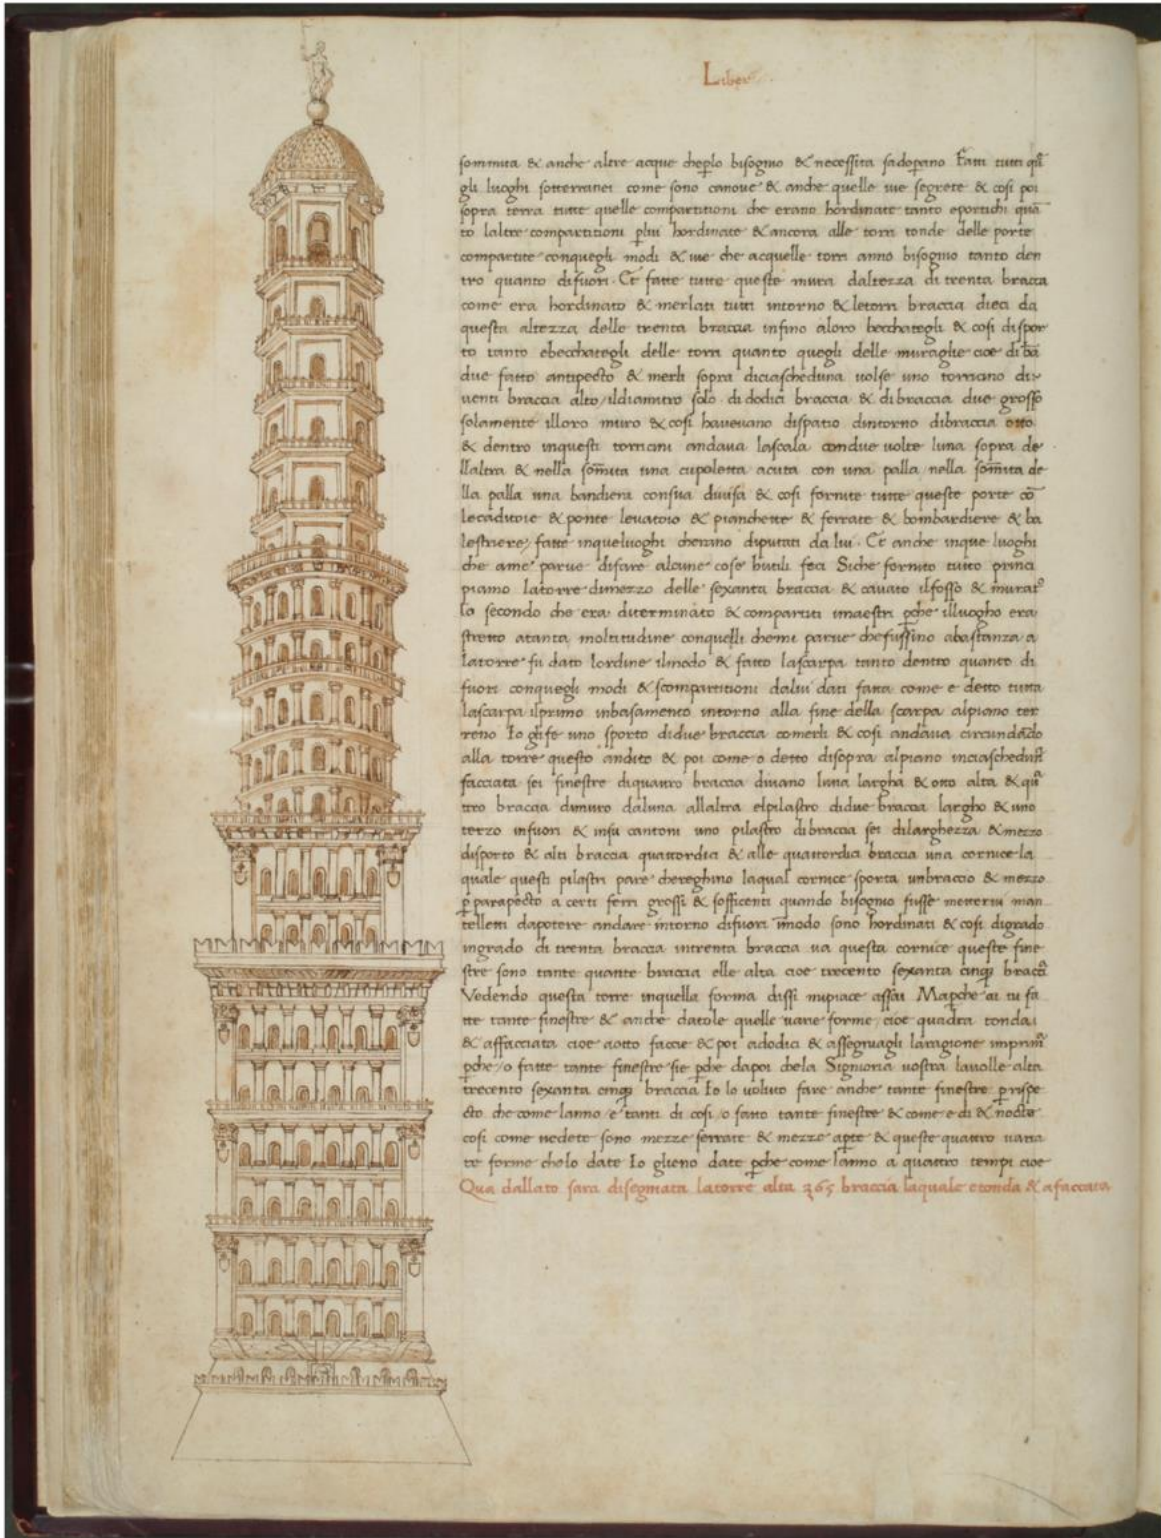 Liber
sommita & anche altre acque cheplo bisogno & necessita sadoperano Fatti tutti q̄sti
gli luoghi sotterranei come sono canoue & anche quelle uie segrete & cosi poi
sopra terra tutte quelle compartitioni che erano hordinate tanto eportichi quā
to laltre compartitioni p lui hordinate & ancora alle torri tonde delle porte
compartite conquegli modi & uie che acquelle torri anno bisogno tanto den
tro quanto difuori. Et fatte tutte queste mura daltezza di trenta braccia
come era hordinato & merlati tutti intorno & letorri braccia dieci da
questa altezza delle trenta braccia infino aloro becchategli & cosi dispor
to tanto ebecchategli delle torri quanto quegli delle muraglie cioe di bā
due fatto antipecto & merli sopra diciascheduna uolse uno torricino di
uenti braccia alto / ildiamitro solo. di dodici braccia & di braccia due grosso
solamente illoro muro & cosi haueuano dispatio dintorno dibraccia otto
& dentro inquesti torricini andaua lascala condue uolte luna sopra de
llaltra & nella som̄ita una cupoletta acuta con una palla nella som̄ita de
lla palla una bandiera consua diuisa & cosi fornite tutte queste porte cō
lecaditoie & ponte leuatoio & pianchette & ferrate & bombardiere & ba
lestriere / fatte inqueluoghi cherano diputati da lui. Et anche inque luoghi
che ame parue difare alcune cose hutili feci Siche fornito tutto princi
piamo latorre dimezzo delle sexanta braccia & cauato ilfosso & murat°
lo secondo che era diterminato & compartiti imaestri pche illuogho era
stretto atanta moltitudine conquelli chemi parue chefussino abastanza a
latorre fu dato lordine ilmodo & fatto lascarpa tanto dentro quanto di
fuori conquegli modi & scompartitioni dalui dati fatta come e detto tutta
lascarpa ilprimo inbasamento intorno alla fine della scarpa alpiano ter
reno Io gli fe uno sporto didue braccia comerli & cosi andaua circundādo
alla torre questo andito & poi come o detto disopra alpiano inciaschedun̄
facciata sei finestre diquattro braccia diuano luna largha & otto alta & qū
tro braccia dimuro daluna allaltra elpilastro didue braccia largho & uno
terzo infuori & insu cantoni uno pilastro dibraccia sei dilarghezza & mezzo
disporto & alti braccia quattordici & alle quattordici braccia una cornice la
quale questi pilastri pare chereghino laqual cornice sporta unbraccio & mezzo
p parapecto a certi ferri grossi & sofficenti quando bisogno fusse metterui man
telletti dapotere andare intorno difuori īmodo sono hordinati & cosi digrado
ingrado di trenta braccia intrenta braccia ua questa cornice queste fine
stre sono tante quante braccia elle alta cioe trecento sexanta cinq; braccā
Vedendo questa torre inquella forma dissi mipiace assai Mapche ai tu fa
tte tante finestre & anche datole quelle uarie forme, cioe quadra tonda
& affacciata cioe aotto faccie & poi adodici & assegnagli laragione imprim̄
pche / o fatte tante finestre sie pche dapoi chela Signoria uostra lauolle alta
trecento sexanta cinq; braccia Io lo uoluto fare anche tante finestre p rispe
cto che come lanno e tanti di cosi / o fatto tante finestre & come e di & nocte
cosi come uedete sono mezze serrate & mezze apte & queste quattro uaria
te forme chelo date Io glieno date pche come lanno a quattro tempi cioe
Qua dallato sara disegniata latorre alta 365 braccia laquale etonda & afacciata